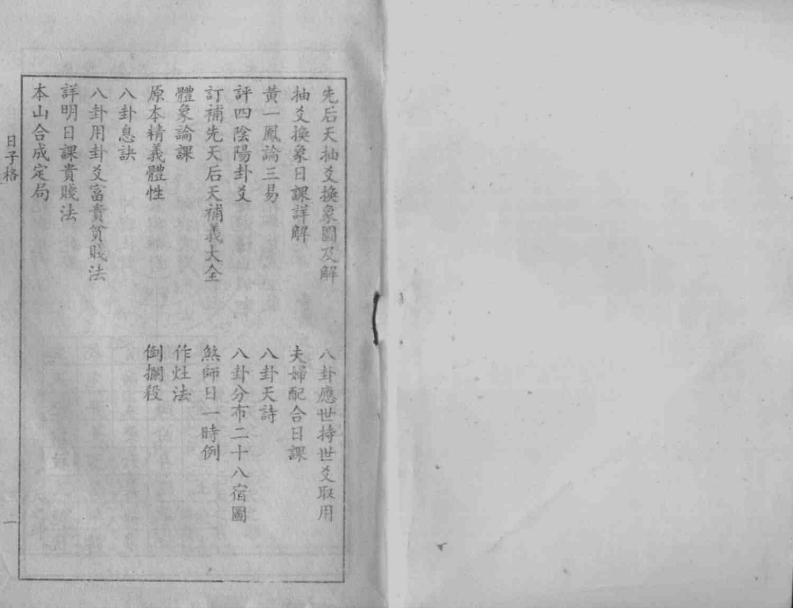 先后天抽爻換象圖及解
抽爻換象日課詳解
黃一鳳論三易
評四陰陽卦爻
訂補先天后天補義大全
體象論課
原本精義體性
八卦息訣
八卦用卦爻富貴貧賤法
詳明日課貴賤法
本山合成定局
八卦應世持世爻取用
夫婦配合日課
八卦天詩
八卦分布二十八宿圖
煞師日一時例
作灶法
倒攔殺
日子格
一